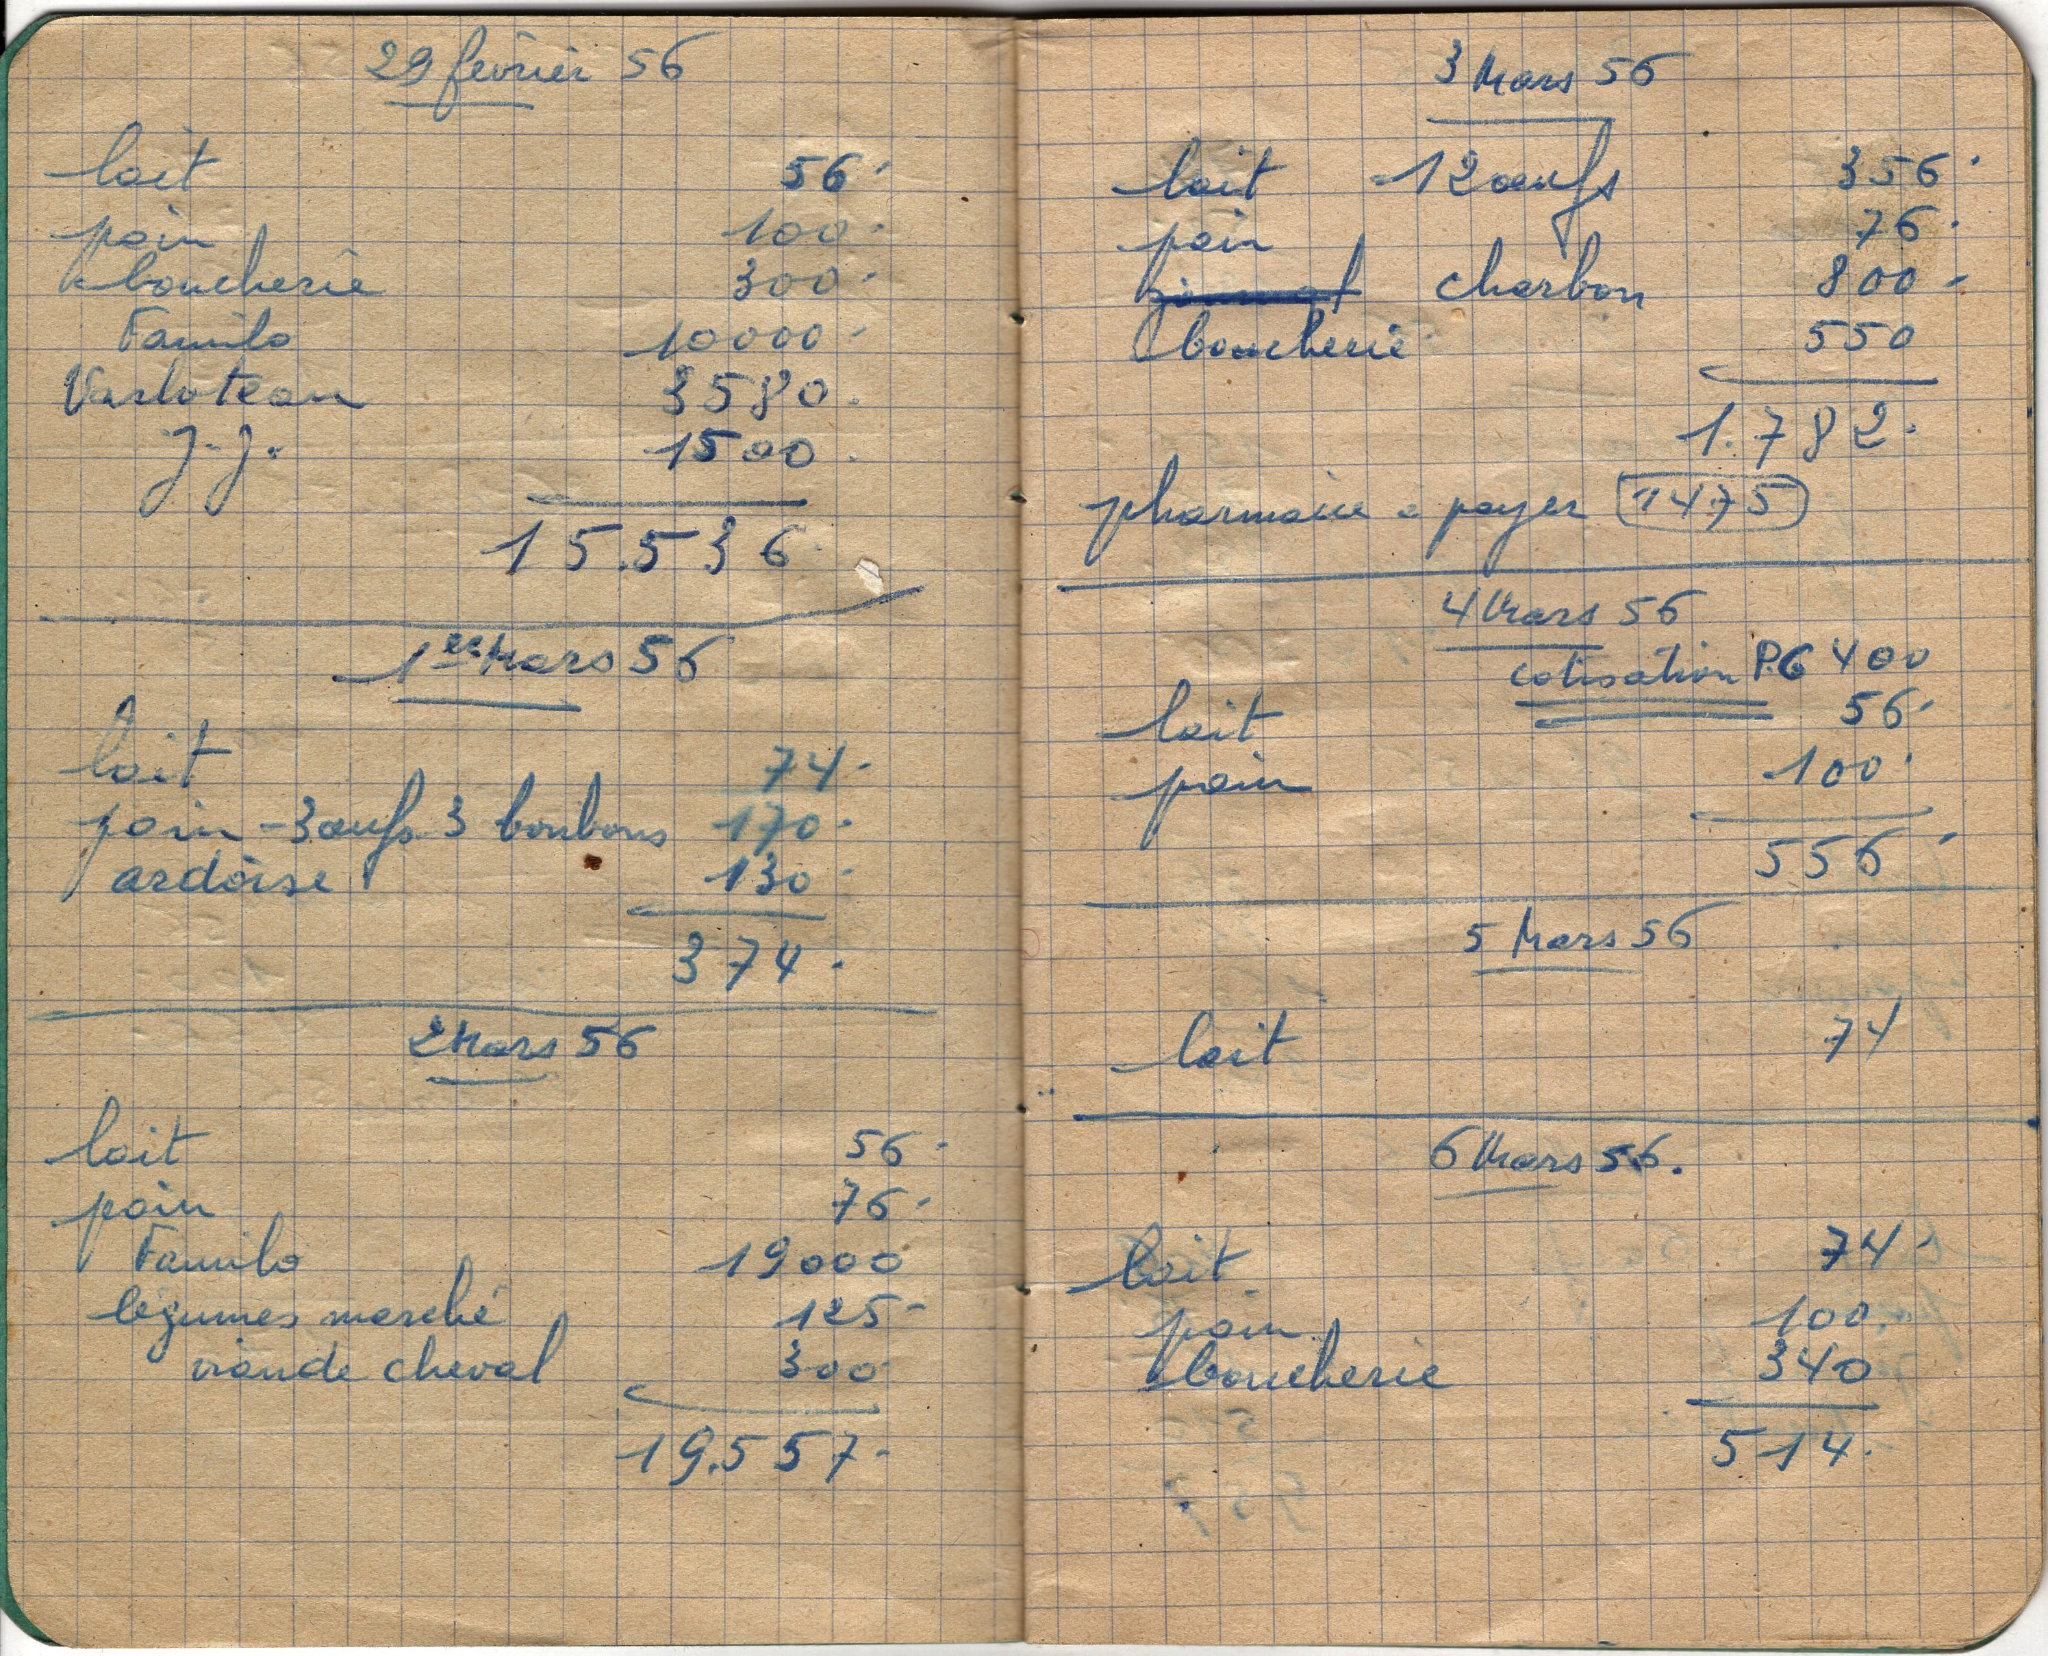 29 février 56
lait 56.
pain 100.
boucherie 300.
Familo 10000.
Varloteau 3580.
J.J. 1500.
15.536.
1er Mars 56
lait 74.
pain - 3 œufs 3 bonbons 170.
ardoise 130.
374.
2 Mars 56
lait 56.
pain 76.
Familo 19000
légumes marché 125-
viande cheval 300
19.557.
3 Mars 56
lait - 12 œufs 356.
pain 76.
charbon 800-
boucherie 550
1.782.
pharmacie a payer 1475
4 Mars 56
cotisation P.G 400
lait 56.
pain 100.
556
5 Mars 56
lait 74
6 Mars 56.
lait 74.
pain 100.
boucherie 340
514.